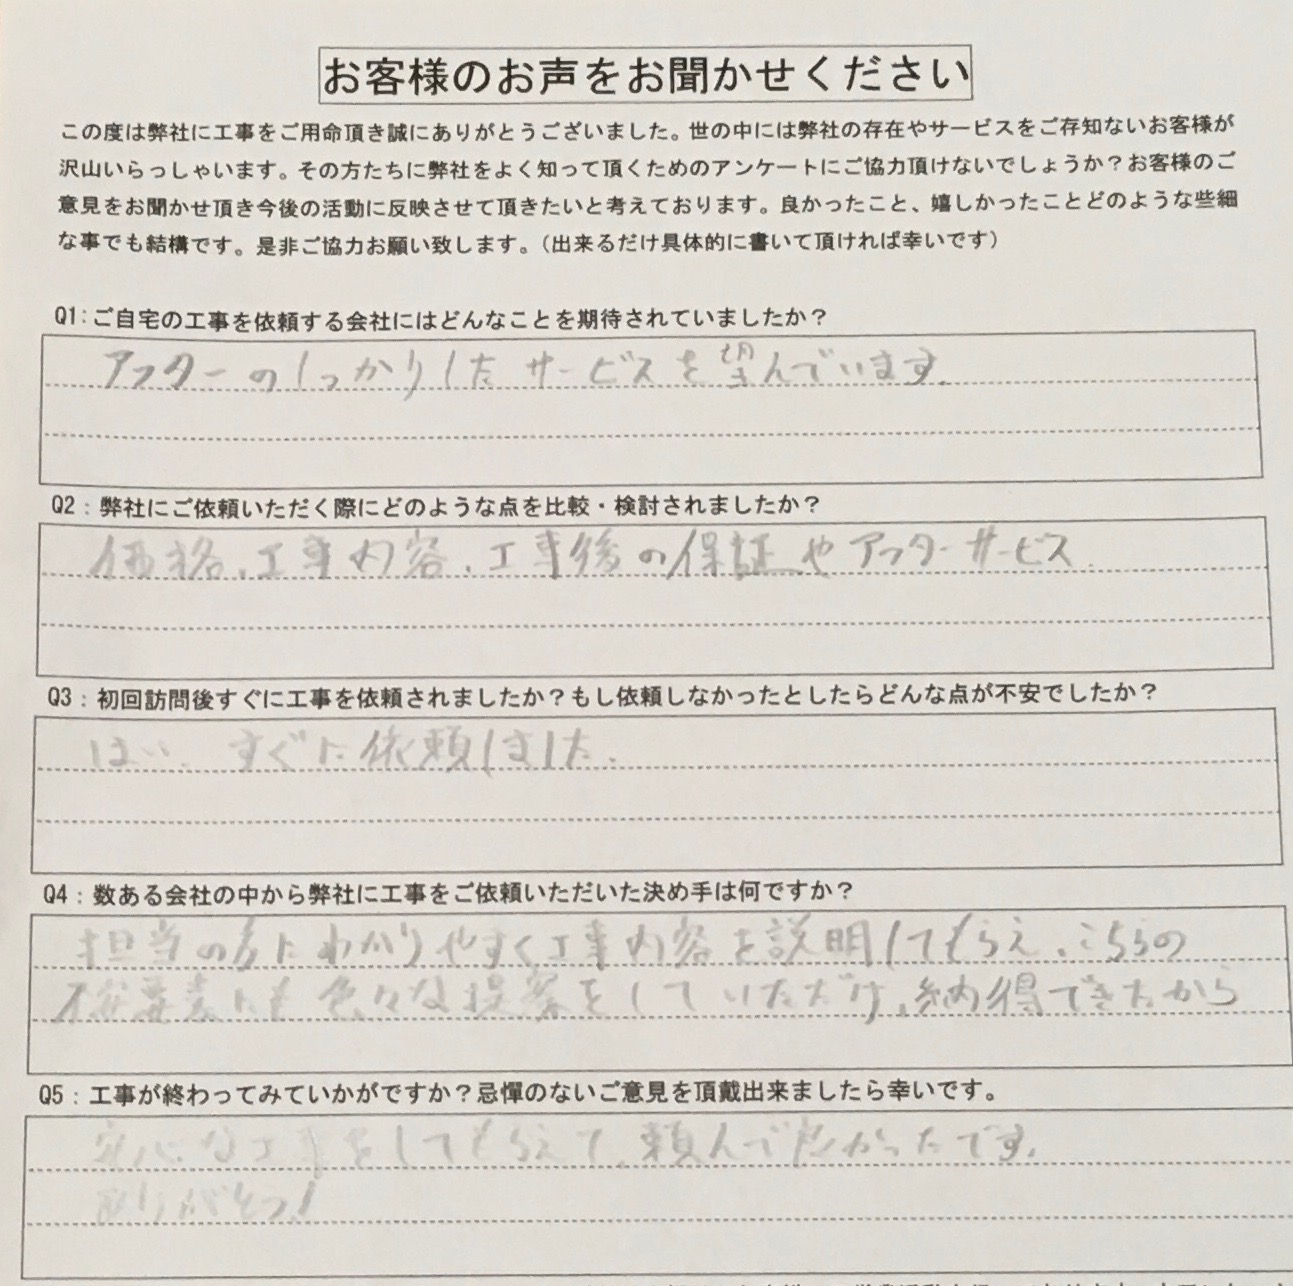 お客様のお声をお聞かせください
この度は弊社に工事をご用命頂き誠にありがとうございました。世の中には弊社の存在やサービスをご存知ないお客様が
沢山いらっしゃいます。その方たちに弊社をよく知って頂くためのアンケートにご協力頂けないでしょうか？お客様のご
意見をお聞かせ頂き今後の活動に反映させて頂きたいと考えております。良かったこと、嬉しかったことどのような些細
な事でも結構です。是非ご協力お願い致します。（出来るだけ具体的に書いて頂ければ幸いです）
Q1：ご自宅の工事を依頼する会社にはどんなことを期待されていましたか？
アフターのしっかりしたサービスを望んでいます。
Q2：弊社にご依頼いただく際にどのような点を比較・検討されましたか？
価格、工事内容、工事後の保証やアフターサービス
Q3：初回訪問後すぐに工事を依頼されましたか？もし依頼しなかったとしたらどんな点が不安でしたか？
はい、すぐに依頼しました。
Q4：数ある会社の中から弊社に工事をご依頼いただいた決め手は何ですか？
担当の方にわかりやすく工事内容を説明してもらえ、こちらの
にも色々な提案をしていただけ、納得できたから
Q5：工事が終わってみていかがですか？忌憚のないご意見を頂戴出来ましたら幸いです。
安心な工事をしてもらえて、頼んで良かったです。
ありがとう！